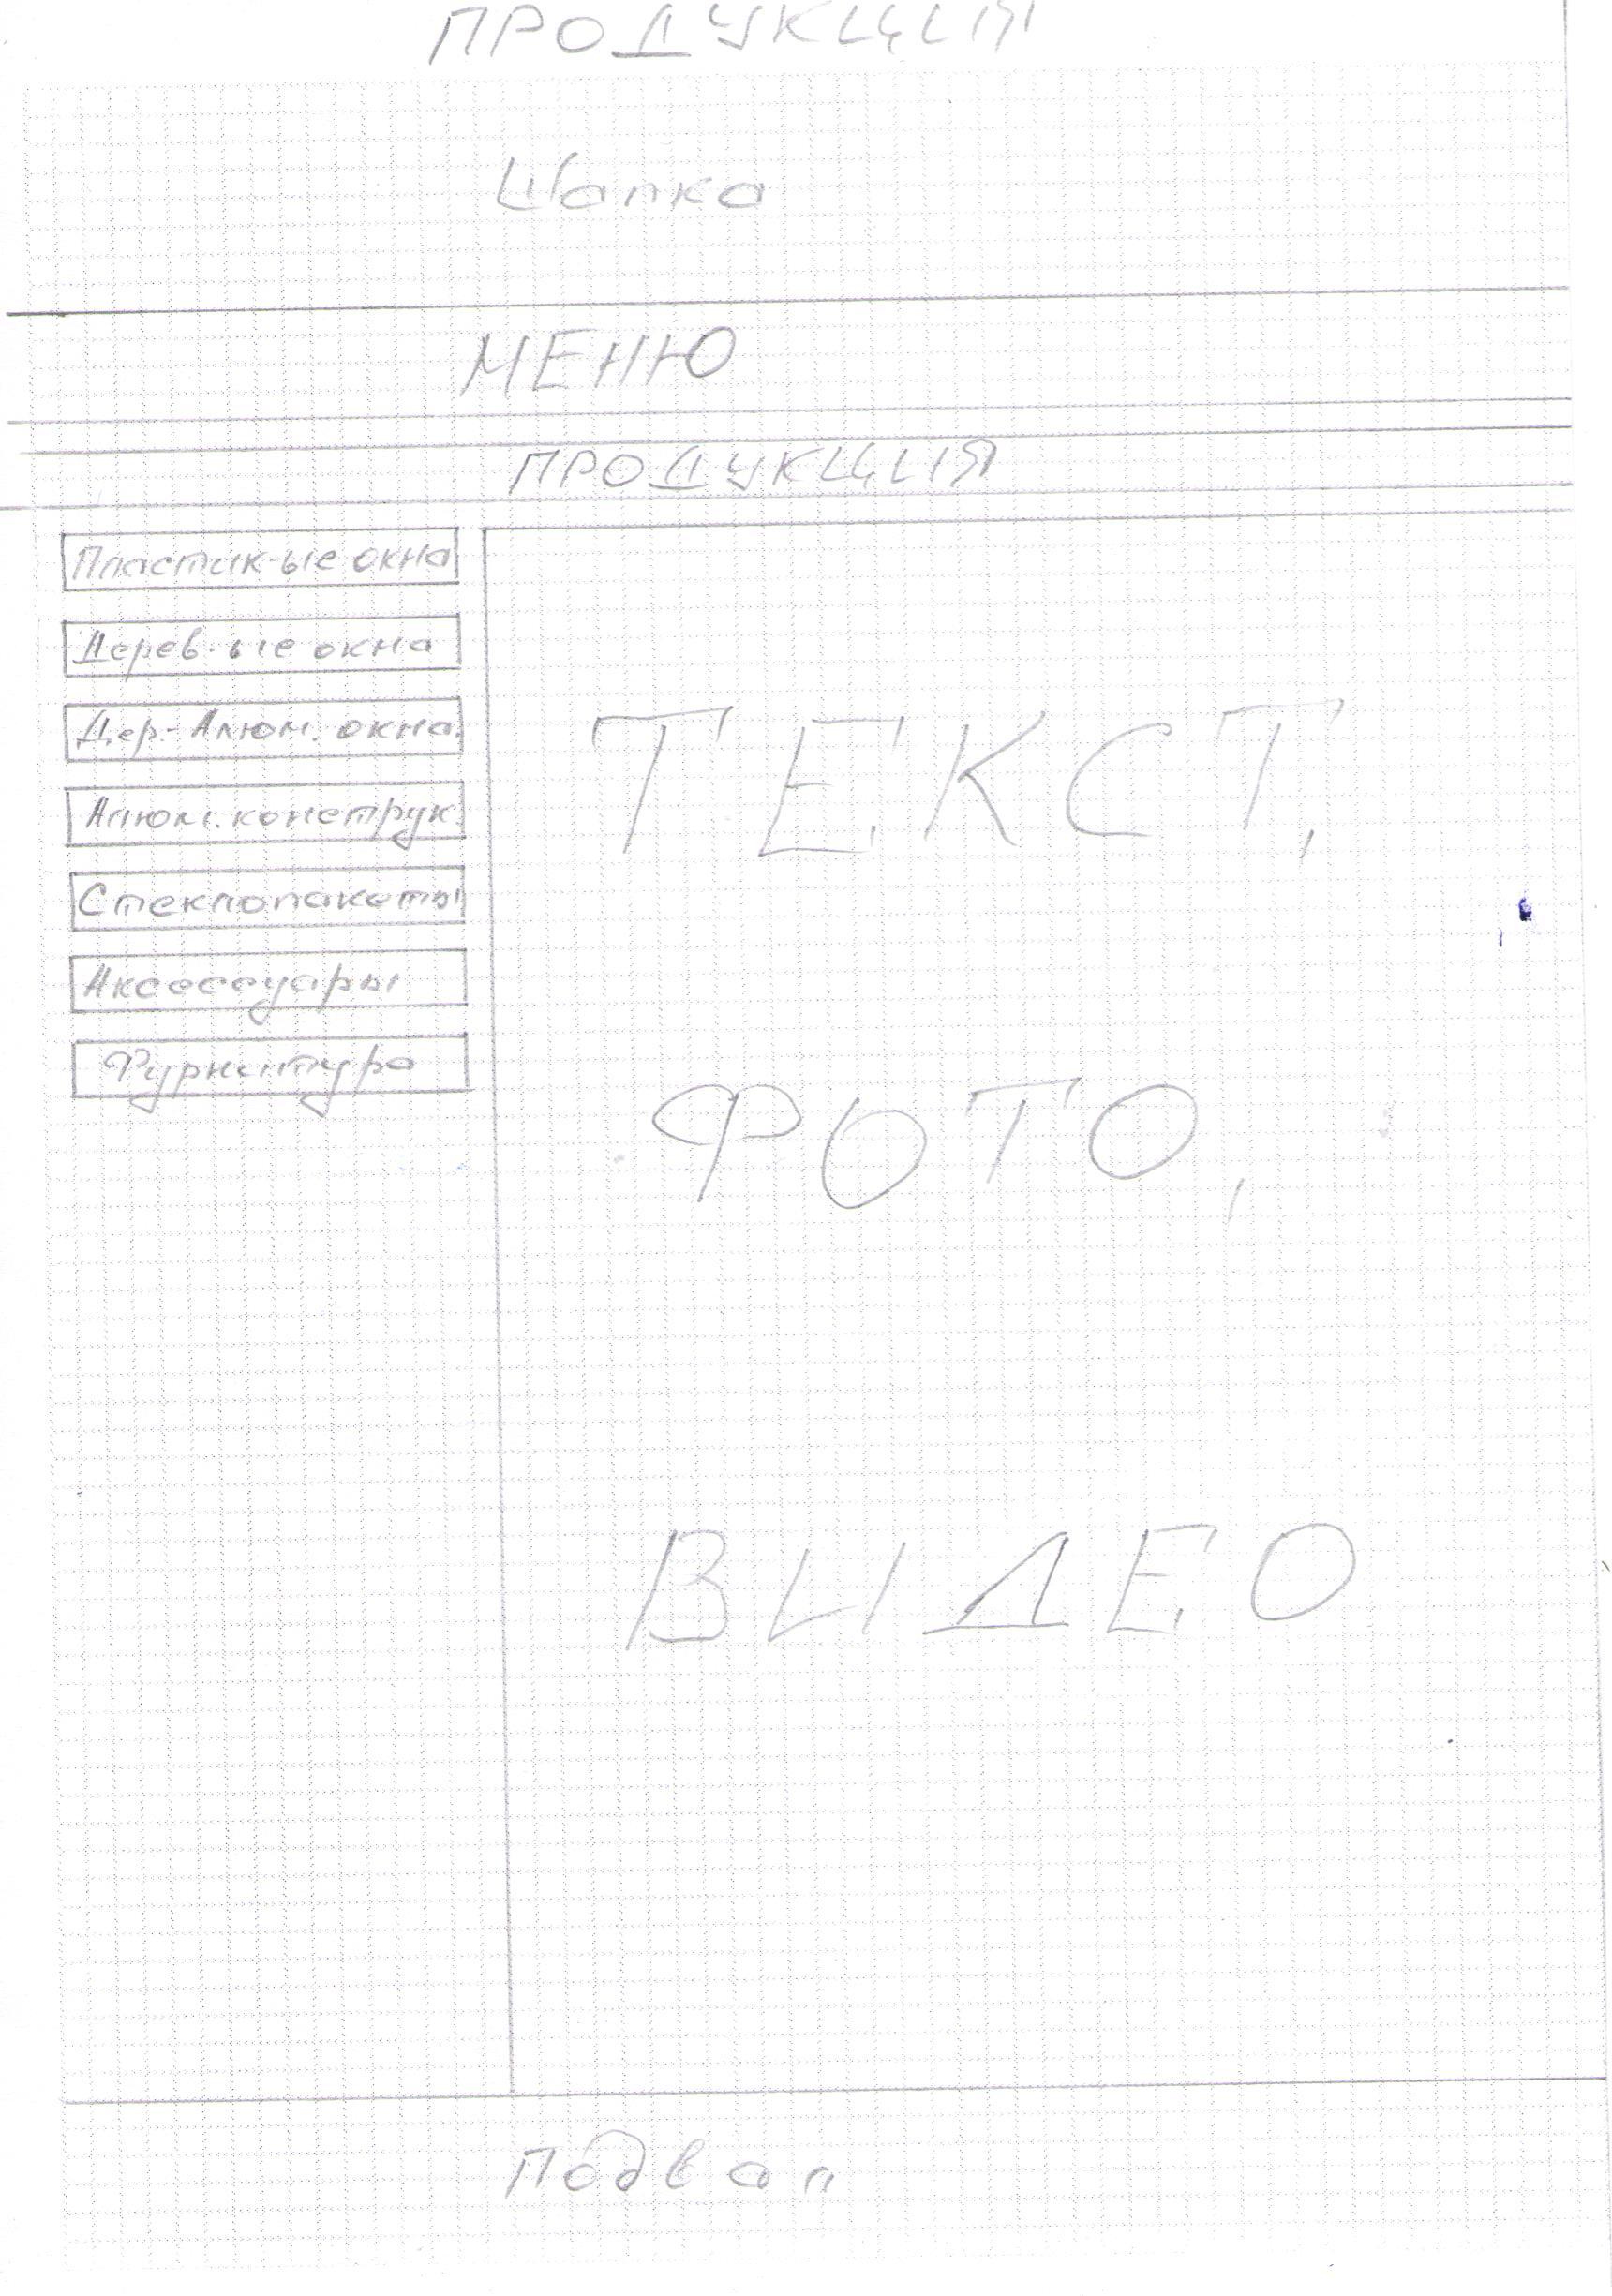 ПРОДУКЦИЯ
Шапка
МЕНЮ
ПРОДУКЦИЯ
Пластик-ые окна
Дерев-ые окна
Дер-Алюм. окна.
Алюм. конструк.
Стеклопакеты
Аксессуары
Фурнитура
ТЕКСТ,
ФОТО,
ВИДЕО
подвал